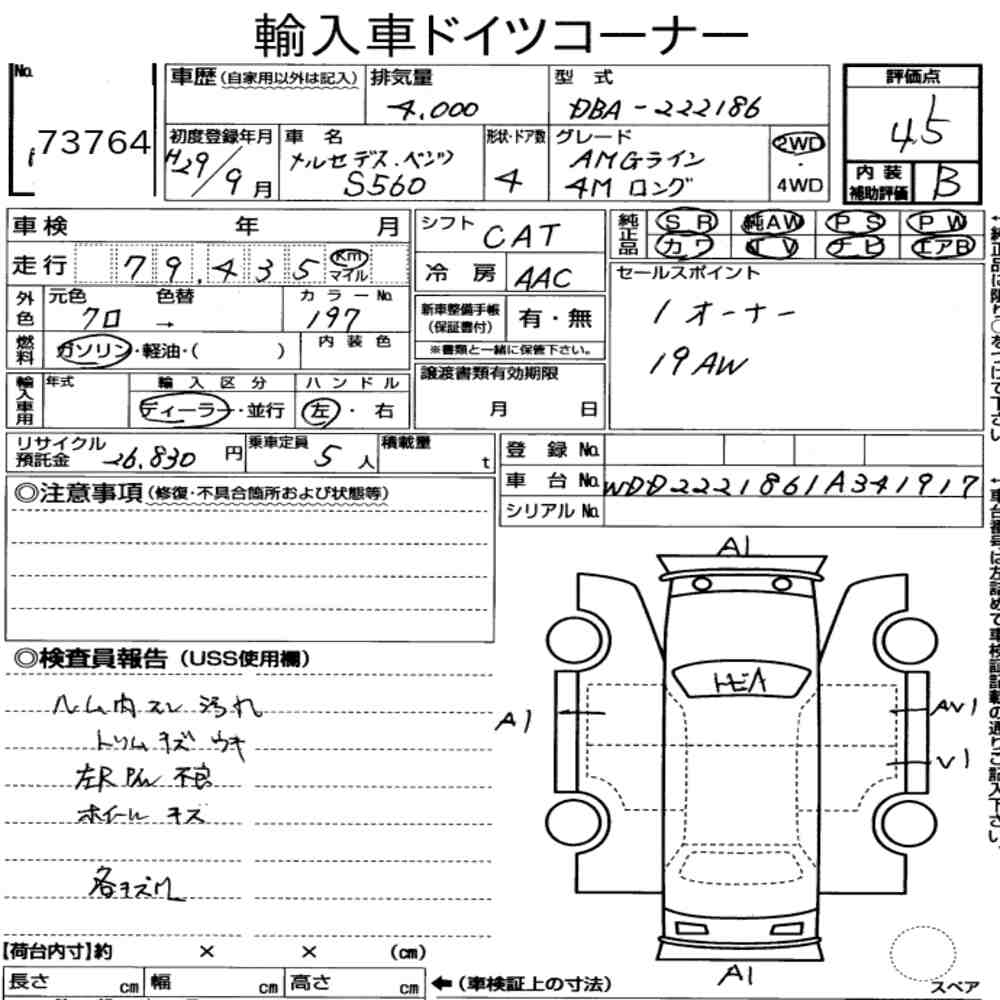 輸入車ドイツコーナー
No. 73764
車歴(自家用以外は記入) 排気量 4,000 型式 DBA-222186
評価点 4.5
初度登録年月 H29/9月 車名 メルセデス・ベンツ S560 形状・ドア数 4 グレード AMGライン 4M ロング 2WD・4WD
内装補助評価 B
車検 年 月
走行 79,435 Km マイル
外色 元色 クロ 色替 → カラーNo. 197
燃料 ガソリン・軽油・( ) 内装色
輸入車用 年式 輸入区分 ディーラー・並行 ハンドル 左・右
シフト CAT
冷房 AAC
新車整備手帳(保証書付) 有・無
※書類と一緒に保管下さい。
譲渡書類有効期限
月 日
純正品 SR 純AW PS PW
カワ TV ナビ エアB
セールスポイント
1オーナー
19AW
リサイクル預託金 26,830円 乗車定員 5人 積載量 t
登録No.
車台No. WDD2221861A341917
シリアルNo.
◎注意事項(修復・不具合箇所および状態等)
◎検査員報告(USS使用欄)
ルーム内スレ 汚れ
トリム キズ ウキ
左R 不良
ホイール キズ
各キズ
A1
トビA
A1
AV1
V1
A1
スペア
【荷台内寸】約 × × (cm)
長さ cm 幅 cm 高さ cm ←(車検証上の寸法)